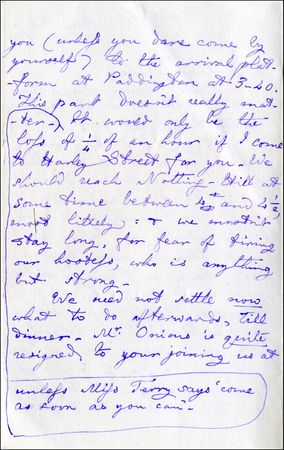 you (unless you dare come by
yourself) to the arrival plat-
-form at Paddington at 3-40.
This part doesn't really mat-
-ter-) It would only be the
loss of ½ of an hour if I come
to Harley Street for you. We
should reach Notting-Hill at
some time between 4 and 4½,
most likely: & we mustn't
stay long, for fear of tiring
our hostess, who is anything
but strong.
We need not settle now
what to do afterwards, till
dinner. Mrs. Onions is quite
resigned to your joining us at
unless Miss Terry says "come
as soon as you can".